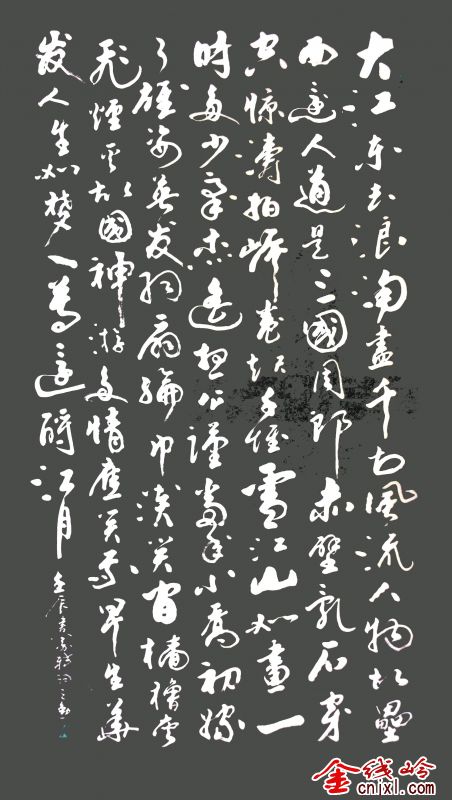 大江东去浪淘盡千古風流人物故壘
西邊人道是三國周郎赤壁乱石穿
空惊濤拍岸卷起千堆雪江山如畫一
时多少豪杰遥想公謹當年小喬初嫁
了雄姿英发羽扇綸巾談笑间樯櫓灰
飛煙灭故國神游多情應笑我早生華
发人生如梦一尊還酹江月
壬辰
金线岭
cnjxl.com